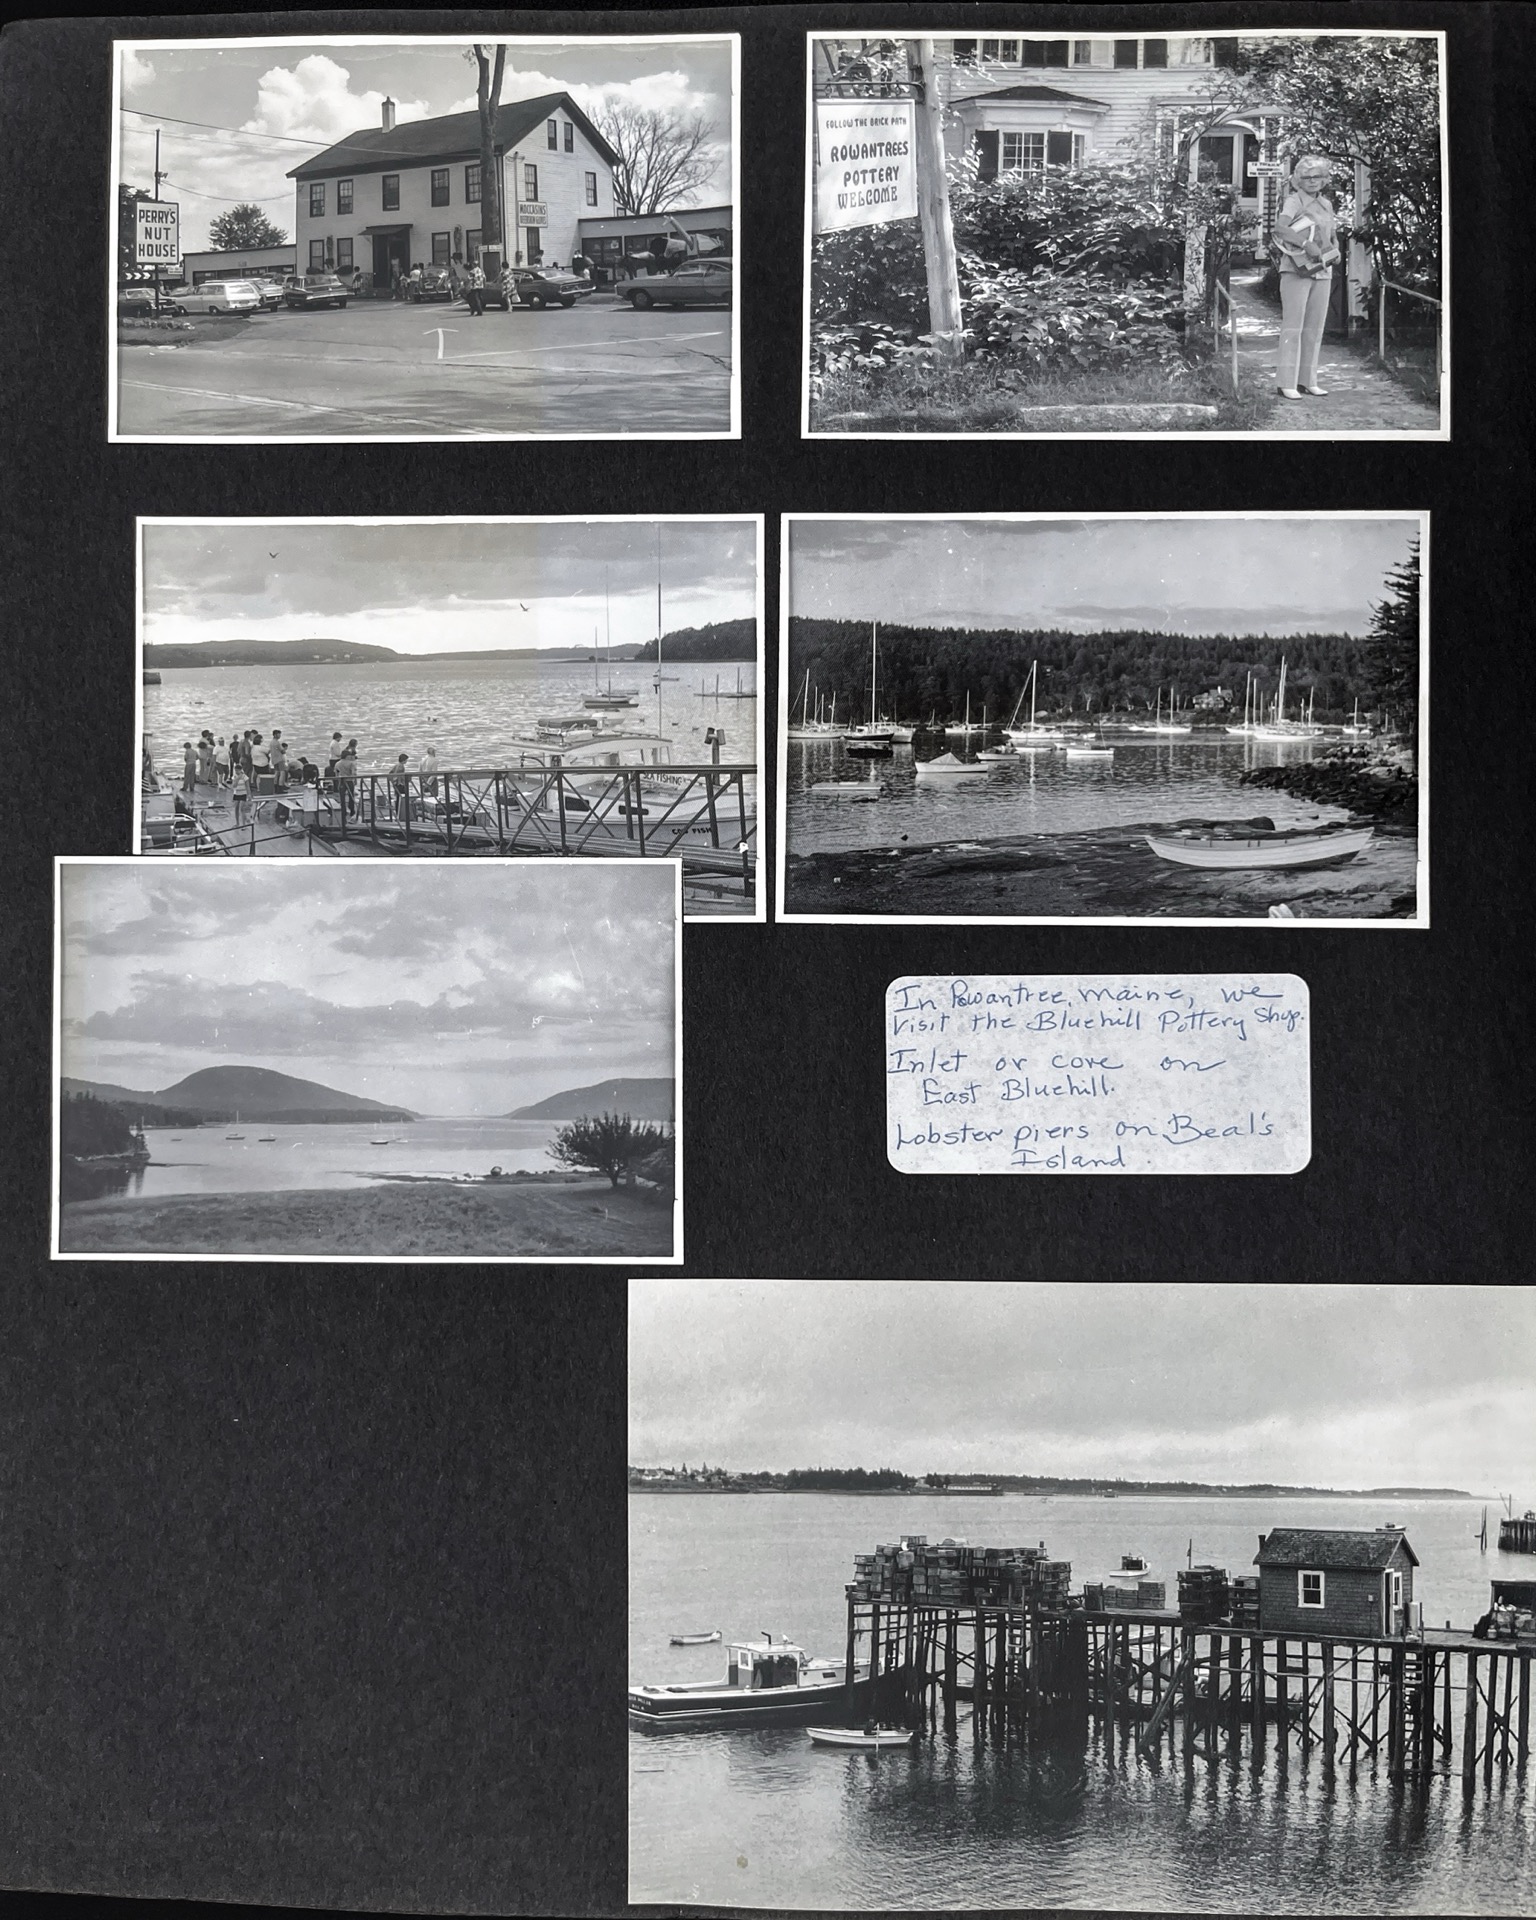 PERRY'S
NUT
HOUSE
MOCCASINS
FOLLOW THE BRICK PATH
ROWANTREES
POTTERY
WELCOME
SEA FISHING
In Rowantree, Maine, we
visit the Bluehill Pottery Shop.
Inlet or cove on
East Bluehill.
Lobster piers on Beal's
Island.